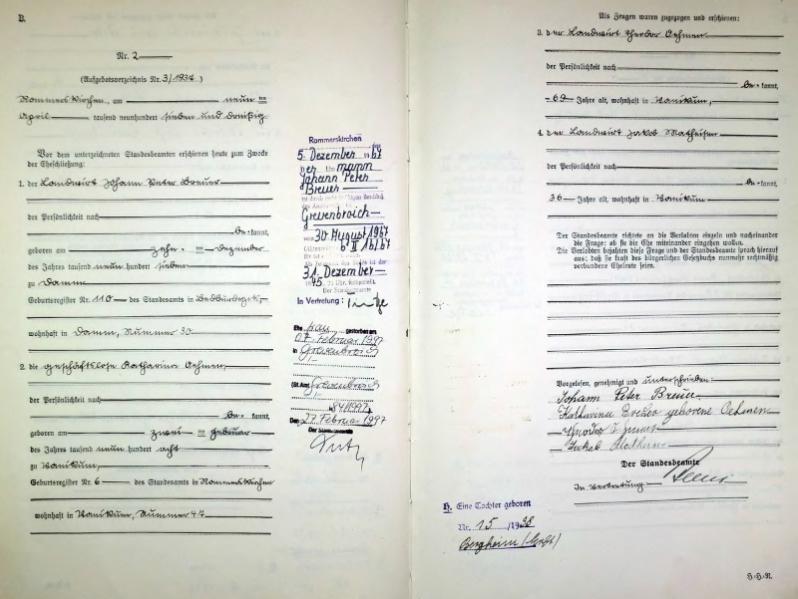 B.
Nr. 2
(Aufgebotsverzeichnis Nr. 3/1937)
Rommerskirchen, am neun ==
April tausend neunhundert sieben und dreißig
Vor dem unterzeichneten Standesbeamten erschienen heute zum Zwecke
der Eheschließung:
1. der Landwirt Johann Peter Breuer
der Persönlichkeit nach
be = kannt,
geboren am zehn = Dezember
des Jahres tausend neun hundert sieben
zu Damm
Geburtsregister Nr. 110 des Standesamts in Bedburdyck,
wohnhaft in Damm, Nummer 30
2. die geschäftslose Katharina Oehmen,
der Persönlichkeit nach
be = kannt,
geboren am zwei = Februar
des Jahres tausend neun hundert acht
zu Vanikum,
Geburtsregister Nr. 6 des Standesamts in Rommerskirchen
wohnhaft in Vanikum, Nummer 47
Rommerskirchen, den
5. Dezember 1967
Der Ehemann
Johann Peter
Breuer
Grevenbroich
vom 30. August 1967
6 II 16/67
31. Dezember
1945, 24 Uhr, festgestellt.
Der Standesbeamte
In Vertretung:
Ehefrau gestorben am
07. Februar 1997
in Grevenbroich
(St.Amt Grevenbroich
Nr. 84/1997)
Den 27. Februar 1997
Der Standesbeamte
Als Zeugen waren zugezogen und erschienen:
3. der Landwirt Theodor Oehmen
der Persönlichkeit nach
be = kannt,
69 Jahre alt, wohnhaft in Vanikum,
4. der Landwirt Jakob Matheisen
der Persönlichkeit nach
be = kannt,
36 Jahre alt, wohnhaft in Vanikum
Der Standesbeamte richtete an die Verlobten einzeln und nacheinander
die Frage: ob sie die Ehe miteinander eingehen wollen.
Die Verlobten bejahten diese Frage und der Standesbeamte sprach hierauf
aus: daß sie kraft des bürgerlichen Gesetzbuchs nunmehr rechtmäßig
verbundene Eheleute seien.
Vorgelesen, genehmigt und unterschrieben:
Johann Peter Breuer
Katharina Breuer geborene Oehmen
Theodor Oehmen
Jakob Matheisen
Der Standesbeamte
In Vertretung
H. Eine Tochter geboren
Nr. 15 /1938
Bergheim (Erft)
H.-H.-N.